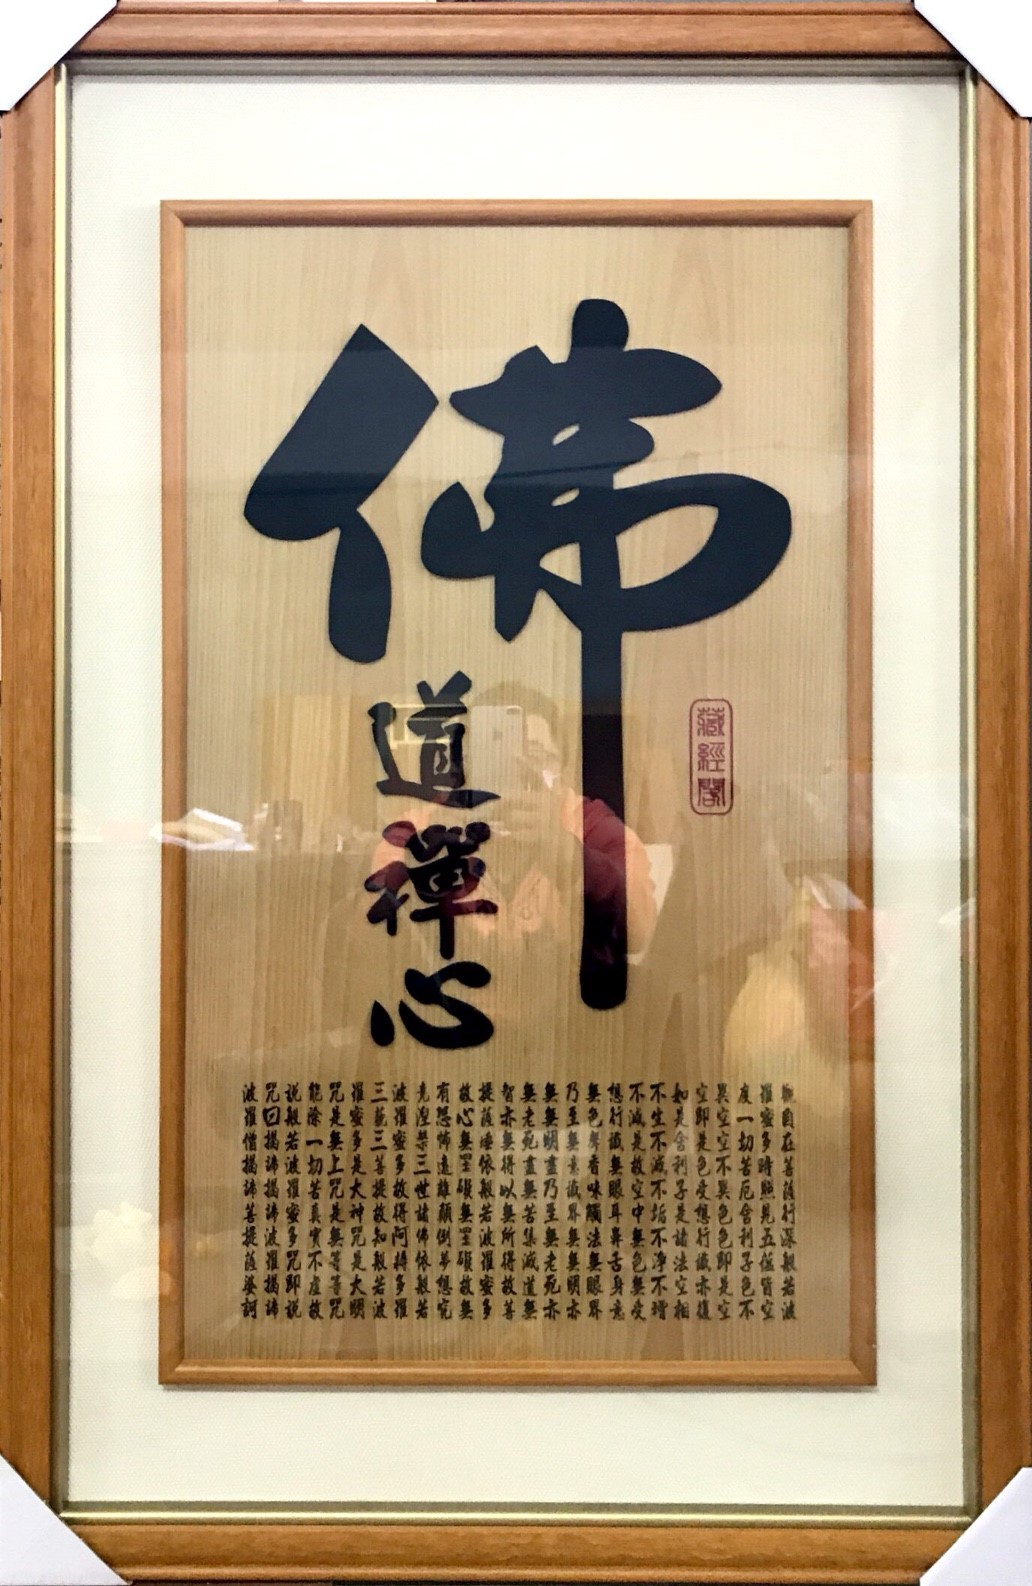 佛
道禪心
藏經閣
觀自在菩薩行深般若波
羅蜜多時照見五蘊皆空
度一切苦厄舍利子色不
異空空不異色色即是空
空即是色受想行識亦復
如是舍利子是諸法空相
不生不滅不垢不淨不增
不減是故空中無色無受
想行識無眼耳鼻舌身意
無色聲香味觸法無眼界
乃至無意識界無無明亦
無無明盡乃至無老死亦
無老死盡無苦集滅道無
智亦無得以無所得故菩
提薩埵依般若波羅蜜多
故心無罣礙無罣礙故無
有恐怖遠離顛倒夢想究
竟涅槃三世諸佛依般若
波羅蜜多故得阿耨多羅
三藐三菩提故知般若波
羅蜜多是大神咒是大明
咒是無上咒是無等等咒
能除一切苦真實不虛故
說般若波羅蜜多咒即說
咒曰揭諦揭諦波羅揭諦
波羅僧揭諦菩提薩婆訶